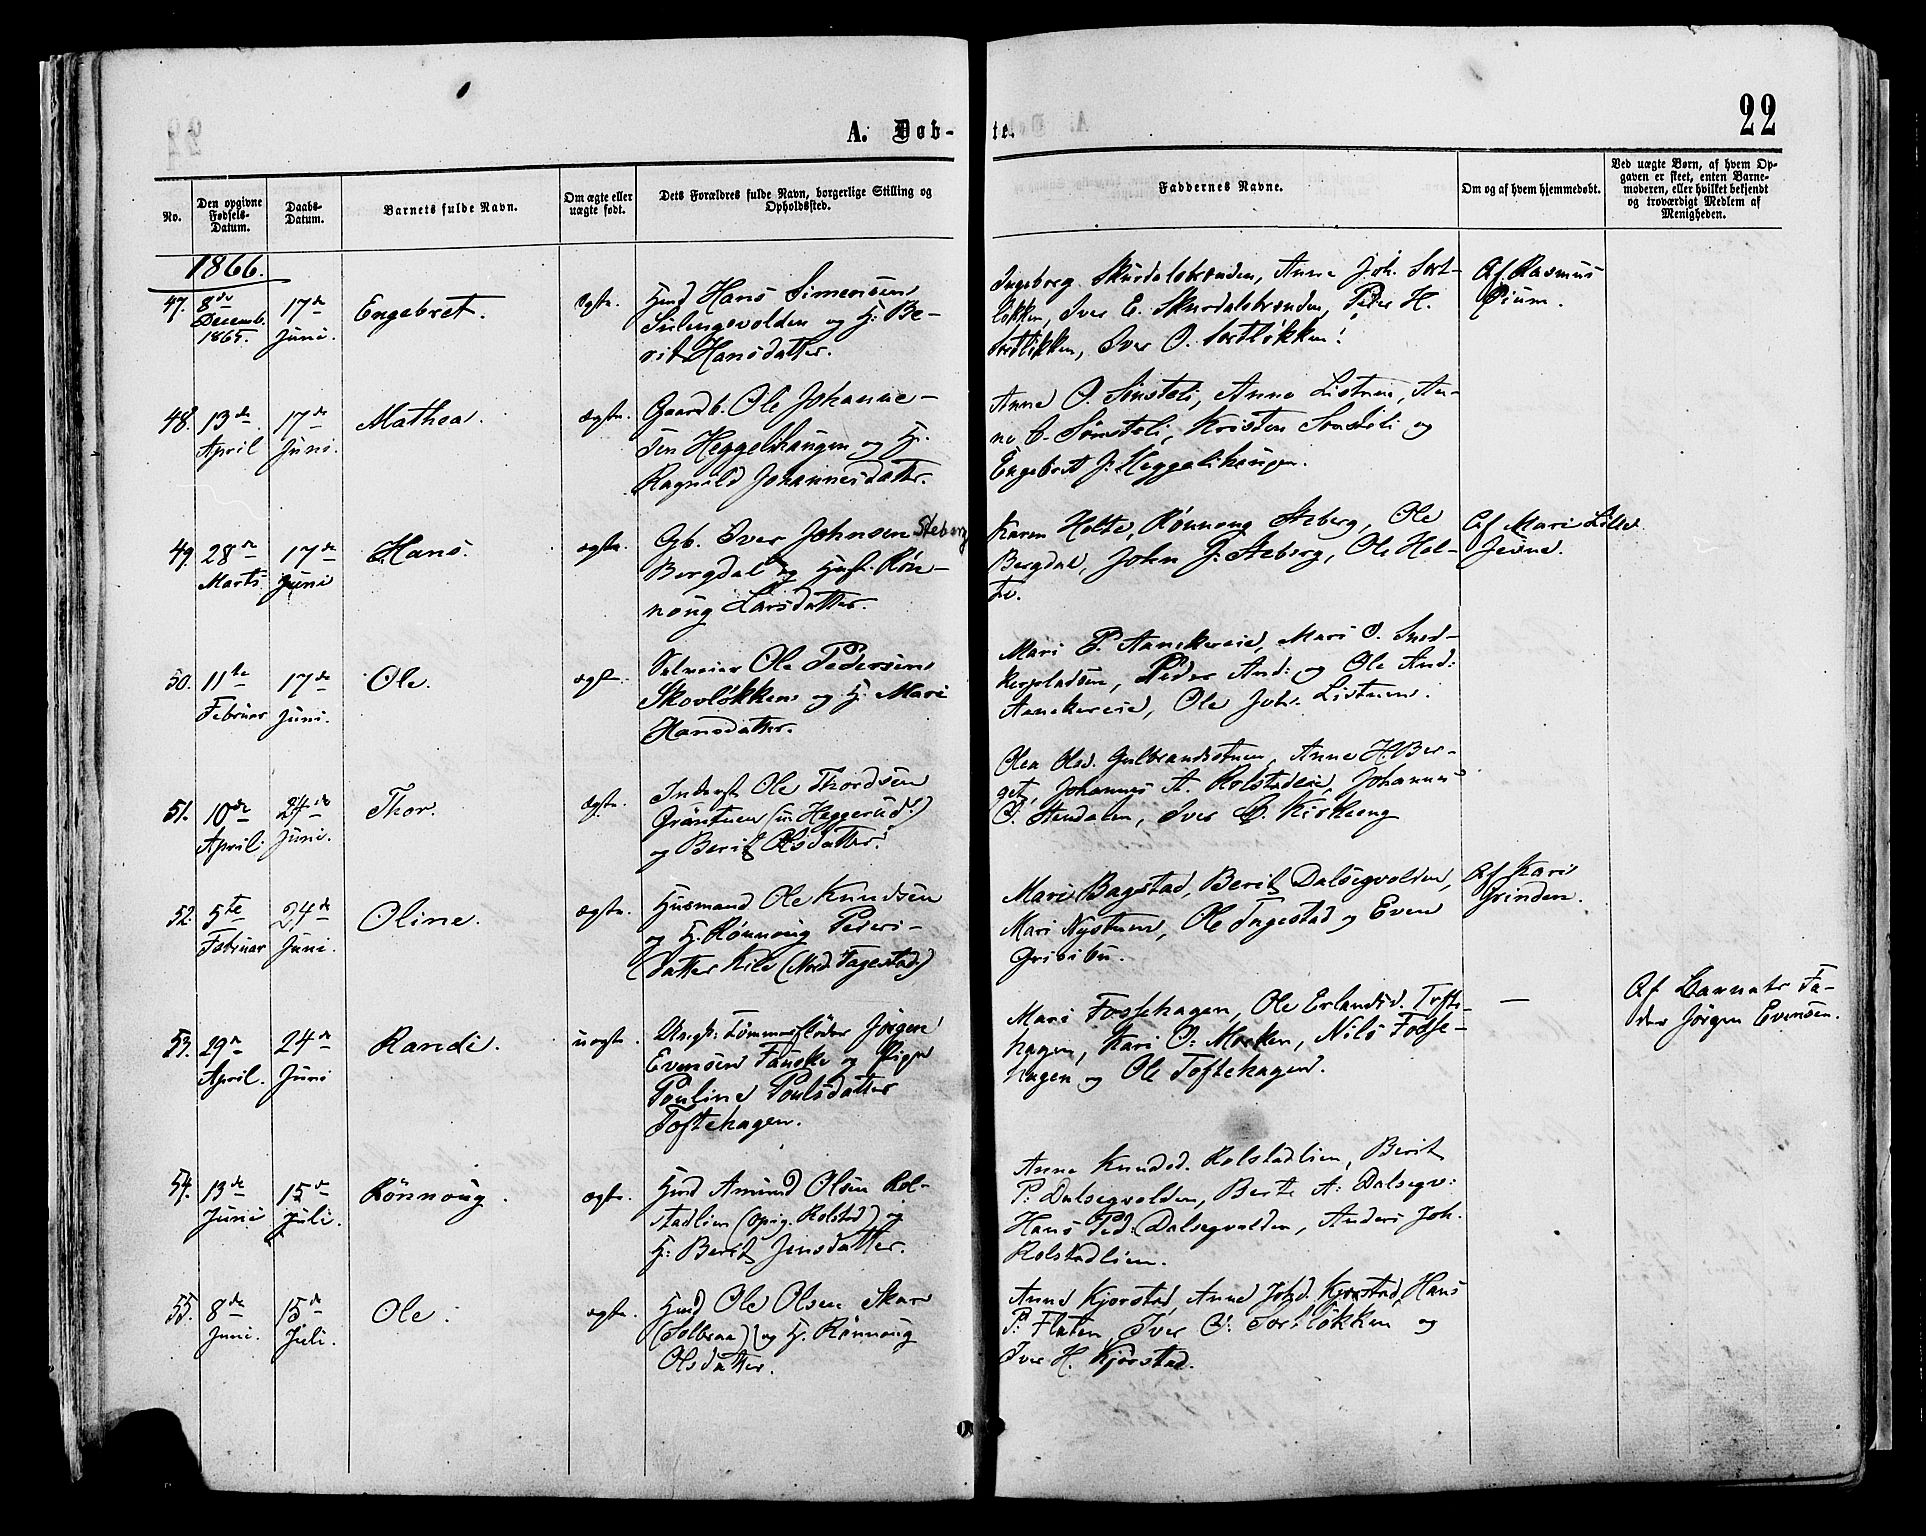 22
A. Døb-
te.
No.
Den opgivne Fødsels-Datum.
Daabs-Datum.
Barnets fulde Navn.
Om ægte eller uægte født.
Dets Forældres fulde Navn, borgerlige Stilling og Opholdssted.
Faddernes Navne.
Om og af hvem hjemmedøbt.
Ved uægte Børn, af hvem Op-
gaven er skeet, enten Barne-
moderen, eller hvilket bekjendt
og troværdigt Medlem af
Menigheden.
1866.
47. 8de Decemb. 1865. 17de Juni. Engebret. ægte.
Hmd Hans Simensen
Sulengsvolden og H: Be-
rit Hansdatter.
Ingeborg Skurdalsbrænden, Anne Joh. Sort-
løkken, Iver E. Skurdalsbrænden, Peder H.
Sortløkken, Iver O. Sortløkken!
Af Rasmus
Pium.
48. 13de April 17de Juni. Mathea. ægte.
Gaardb. Ole Johanne-
sen Heggelihaugen og H.
Ragnild Johannesdatter.
Anne O. Sønsteli, Anne Listuen, An-
ne O. Sønsteli, Kristen Sønsteli og
Engebret J: Heggelihaugen.
49. 28de Marts. 17de Juni Hans. ægte.
Gb. Iver Johnsen Steberg
Bergdal og Hust. Røn-
noug Larsdatter.
Karen Holte, Rønnoug Steberg, Ole
Bergdal, John J: Steberg, Ole Hol-
te.
Af Mari Lille-
Jevne.
50. 11te Februar 17de Juni. Ole. ægte.
Selveier Ole Pedersen
Skovløkken og H. Mari
Hansdatter.
Mari P. Aanekereie, Mari O. Sned-
kerpladsen, Peder And: og Ole And:
Aanekereie, Ole Joh. Listuen.
51. 10de April. 24de Juni. Thor. ægte.
Inderst Ole Thordsen
Grøntuen (u. Heggerud.)
og Berit Olsdatter.
Olea Olsd. Gulbrandsstuen, Anne H. Ber-
get, Johannes A. Rolstadeie, Johannes
O. Stendalen, Iver O. Kirkeeng
52. 5te Februar 24de Juni. Oline. ægte.
Husmand Ole Knudsen
og H. Rønnoug Peders-
datter Kile (Nord. Fagestad)
Mari Bagstad, Berit Dalsegvolden,
Mari Nystuen, Ole Fagestad og Even
Gribibu.
Af Kari
Grinden.
53. 29de April. 24de Juni Randi. uægte.
Ungk: Tømmerfløder Jørgen
Evensen Fauske og Pige
Pouline Poulsdatter
Toftehagen.
Mari Fossehagen, Ole Erlandsd. Tofte-
hagen, Kari O: Morken, Nils Fosse-
hagen og Ole Toftehagen.
—
Af Barnets Fa-
der Jørgen Evensen.
54. 13de Juni 15de Juli. Rønnoug. ægte.
Hmd Amund Olsen Rol-
stadlien (opig. Rolstad) og
H: Berit Jensdatter.
Anne Knudsd. Rolstadlien, Berit
P: Dalsegvolden, Berte A: Dalsegv:
Hans Ped: Dalsegvolden, Anders Joh.
Rolstadlien.
55. 8de Juni. 15de Juli. Ole. ægte.
Hmd Ole Olsen Skar
(Solbraa) og H. Rønnoug
Olsdatter.
Anne Kjorstad, Anne Johd. Kjorstad, Hans
P: Flaten, Iver O: Sortløkken og
Iver H. Kjørstad.